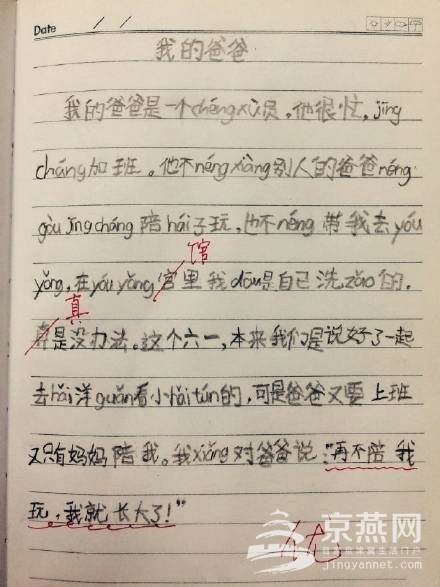 Date / /
我的爸爸
我的爸爸是一个chéngxù员。他很忙，jīng
cháng加班。他不néngxiàng别人的爸爸néng
gòu jīngcháng陪hái子玩，也不néng带我去yóu
yǒng，在yóuyǒng宫里我dōu是自己洗zǎo的。
馆
真
是没办法。这个六一，本来我们是说好了一起
去hǎi洋guǎn看小hǎitún的，可是爸爸又要上班
又只有妈妈陪我。我xiǎng对爸爸说："再不陪我
玩，我就长大了！"
优
京燕网
首席京津冀生活门户
jingyannet.com